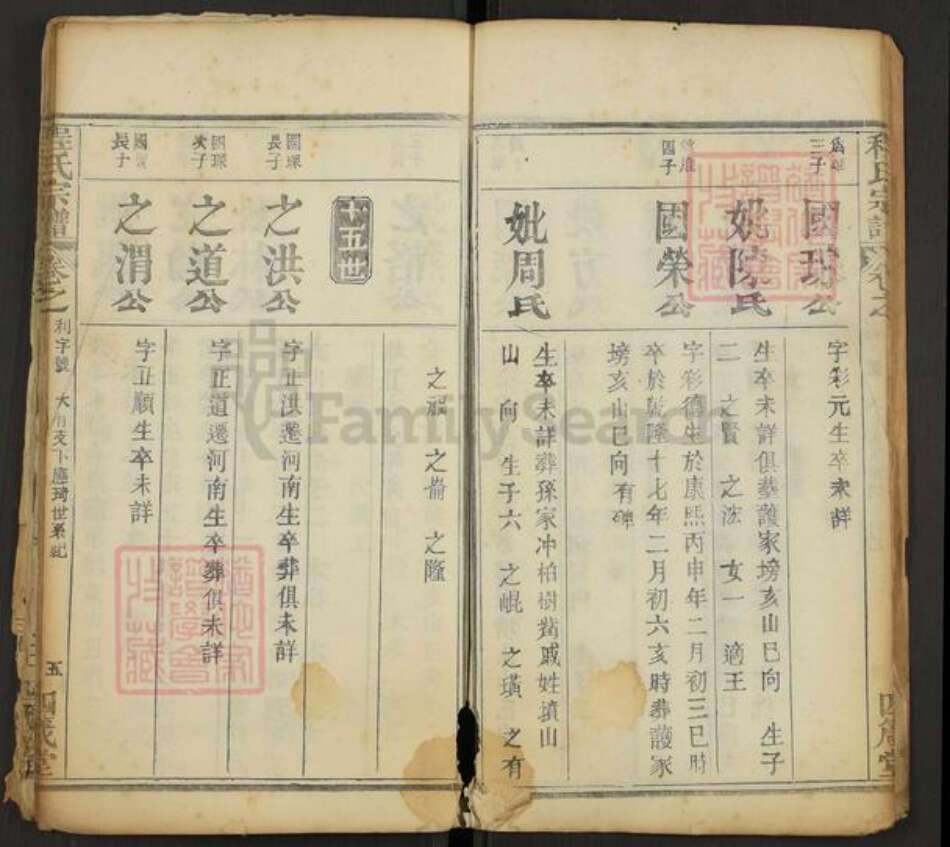 程氏宗譜
卷之
四箴堂
三子
國瑞公
字彩元生卒未詳
妣陳氏
生卒未詳俱塟護家塝亥山巳向 生子
二 之賢 之法 女一 適王
四子
國榮公
字彩德生於康熙丙申年二月初三巳時
卒於乾隆十七年二月初六亥時葬護家
塝亥山巳向有碑
妣周氏
生卒未詳葬孫家冲柏樹嘴戚姓墳山
山 向 生子六 之崐 之璜 之有
之祿 之崙 之隆
十五世
國琛
長子
之洪公
字正洪遷河南生卒葬俱未詳
國琛
次子
之道公
字正道遷河南生卒葬俱未詳
長子
之渭公
字正順生卒未詳
程氏宗譜
卷之
利字號
五
四箴堂
FamilySearch